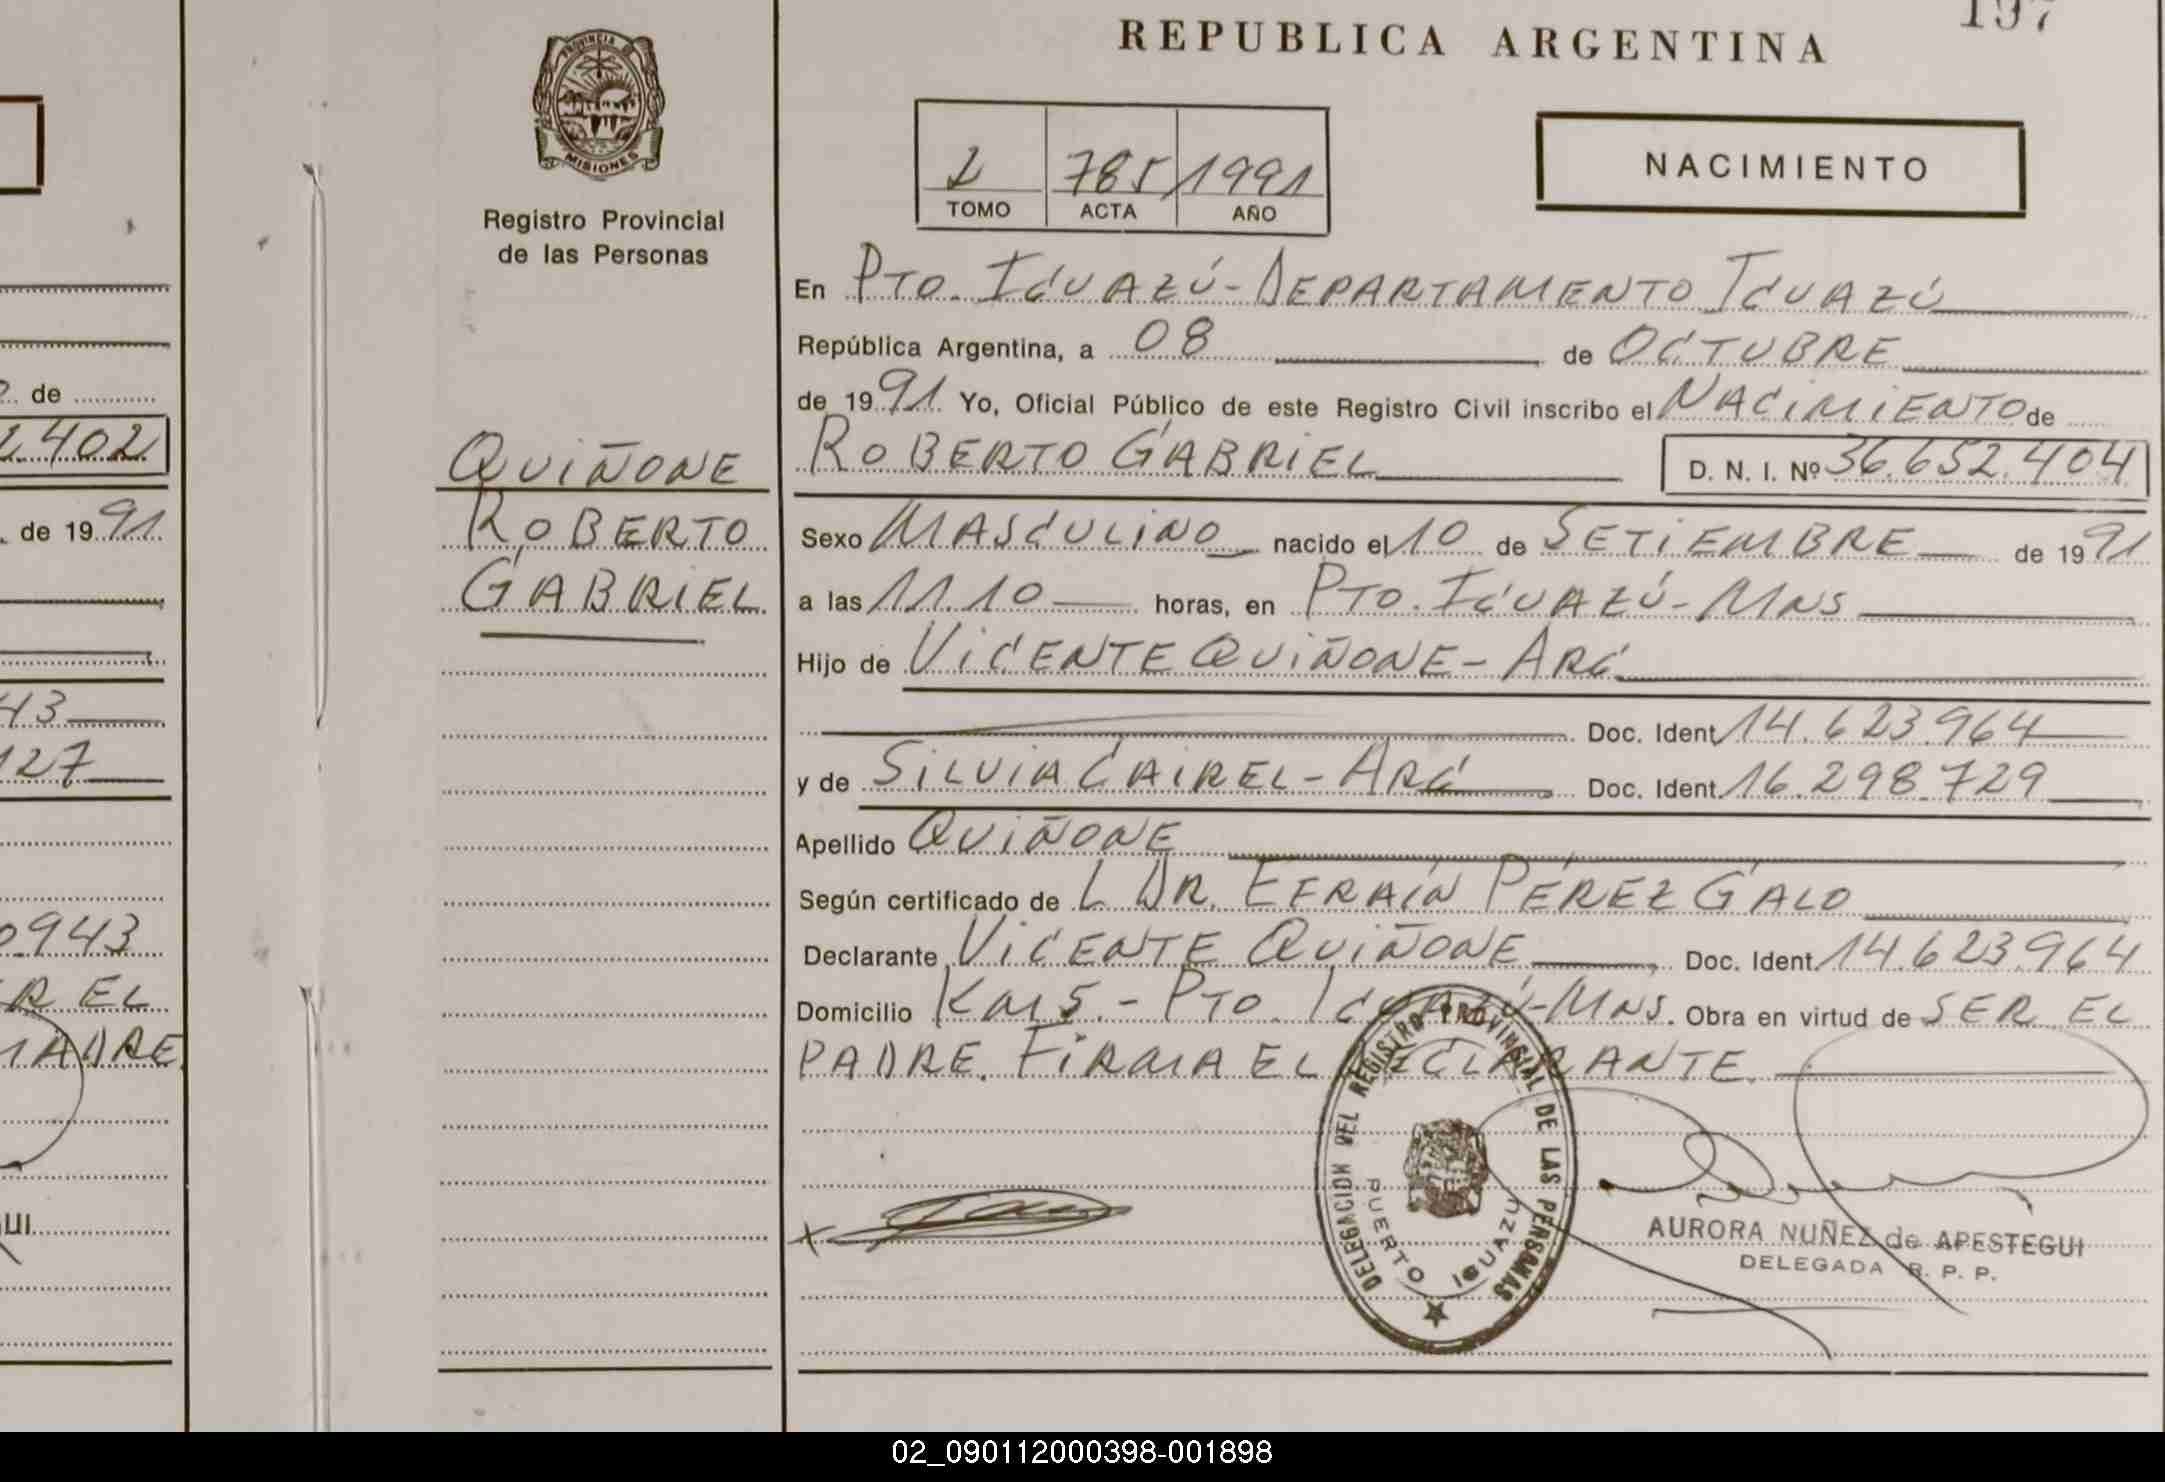 197
REPUBLICA ARGENTINA
PROVINCIA DE
MISIONES
Registro Provincial
de las Personas
2 785 1991
TOMO ACTA AÑO
NACIMIENTO
En PTO. IGUAZÚ - DEPARTAMENTO IGUAZÚ
República Argentina, a 08 de OCTUBRE
de 1991 Yo, Oficial Público de este Registro Civil inscribo el NACIMIENTO de
ROBERTO GABRIEL D. N. I. Nº 36.652.404
QUIÑONE
ROBERTO
GABRIEL
Sexo MASCULINO nacido el 10 de SETIEMBRE de 1991
a las 11.10 horas, en PTO. IGUAZÚ - MNS
Hijo de VICENTE QUIÑONE - ARG
Doc. Ident. 14.623.964
y de SILVIA CAIREL - ARG Doc. Ident. 16.298.729
Apellido QUIÑONE
Según certificado de L DR. EFRAÍN PÉREZ GALO
Declarante VICENTE QUIÑONE Doc. Ident. 14.623.964
Domicilio KM 5. - PTO. IGUAZÚ - MNS. Obra en virtud de SER EL
PADRE. FIRMA EL DECLARANTE.
DELEGACION DEL REGISTRO PROVINCIAL DE LAS PERSONAS
PUERTO IGUAZU
AURORA NUÑEZ de APESTEGUI
DELEGADA R. P. P.
de
2.402
de 1991
43
127
0943
R EL
MADRE.
UI
02_090112000398-001898